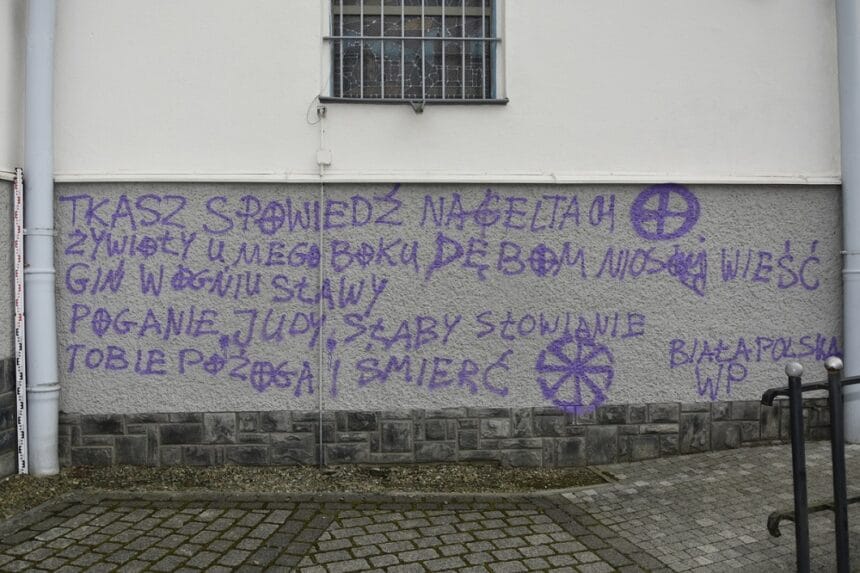 TKASZ SPOWIEDŹ NA GELTACH
ŻYWIOŁY U MEGO BOKU DĘBOM NIOSĄ WIEŚĆ
GIŃ W OGNIU SŁAWY
POGANIE, JUDY, SŁABY SŁOWIANIE
TOBIE POŻOGA I ŚMIERĆ
BIAŁA POLSKA
WP